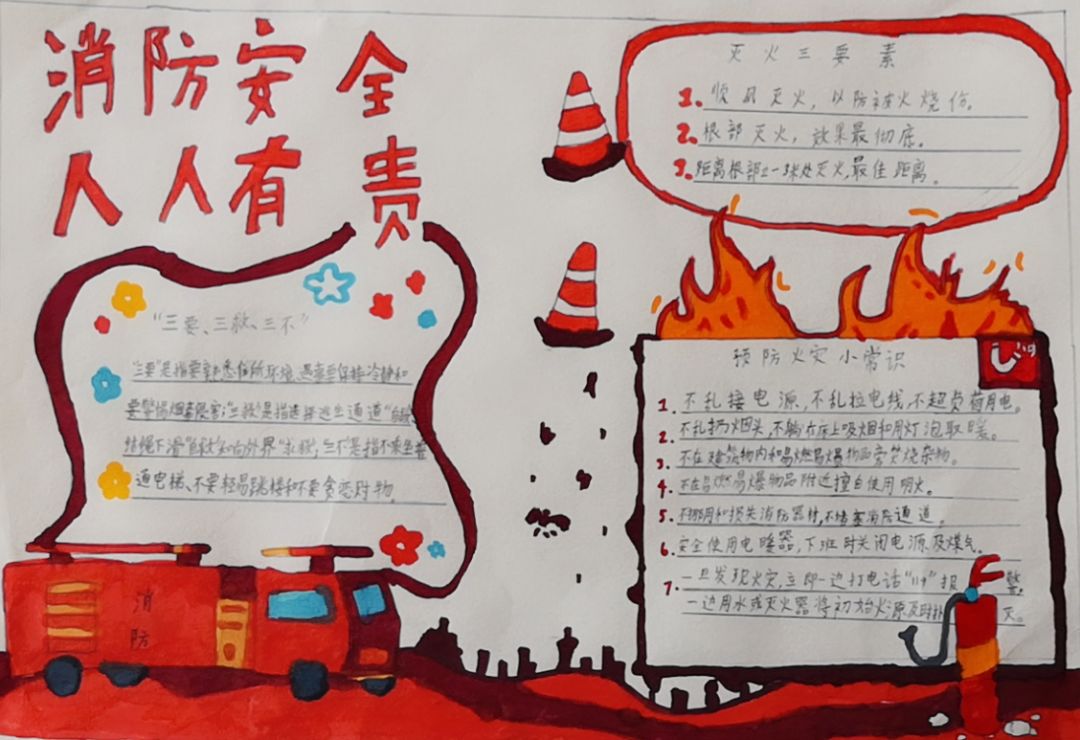 消防安全
人人有责
"三要、三救、三不"
"三要"是指要熟悉住所环境、遇事要保持冷静和
要警惕烟毒侵害;"三救"是指选择逃生通道"自救"
结绳下滑"自救"和向外界"求救";"三不"是指不乘坐普
通电梯、不要轻易跳楼和不要贪恋财物。
消
防
灭火三要素
1.顺风灭火，以防被火烧伤。
2.根部灭火，效果最彻底。
3.距离根部2-3米处灭火,最佳距离。
预防火灾小常识
1.不乱接电源,不乱拉电线,不超负荷用电。
2.不乱扔烟头,不躺在床上吸烟和用灯泡取暖。
3.不在建筑物内和易燃易爆物品旁焚烧杂物。
4.不在易燃易爆物品附近擅自使用明火。
5.不挪用和损失消防器材,不堵塞消防通道。
6.安全使用电暖器,下班时关闭电源及煤气。
7.一旦发现火灾,立即一边打电话"119"报警。
一边用水或灭火器将初始火源及时扑灭。